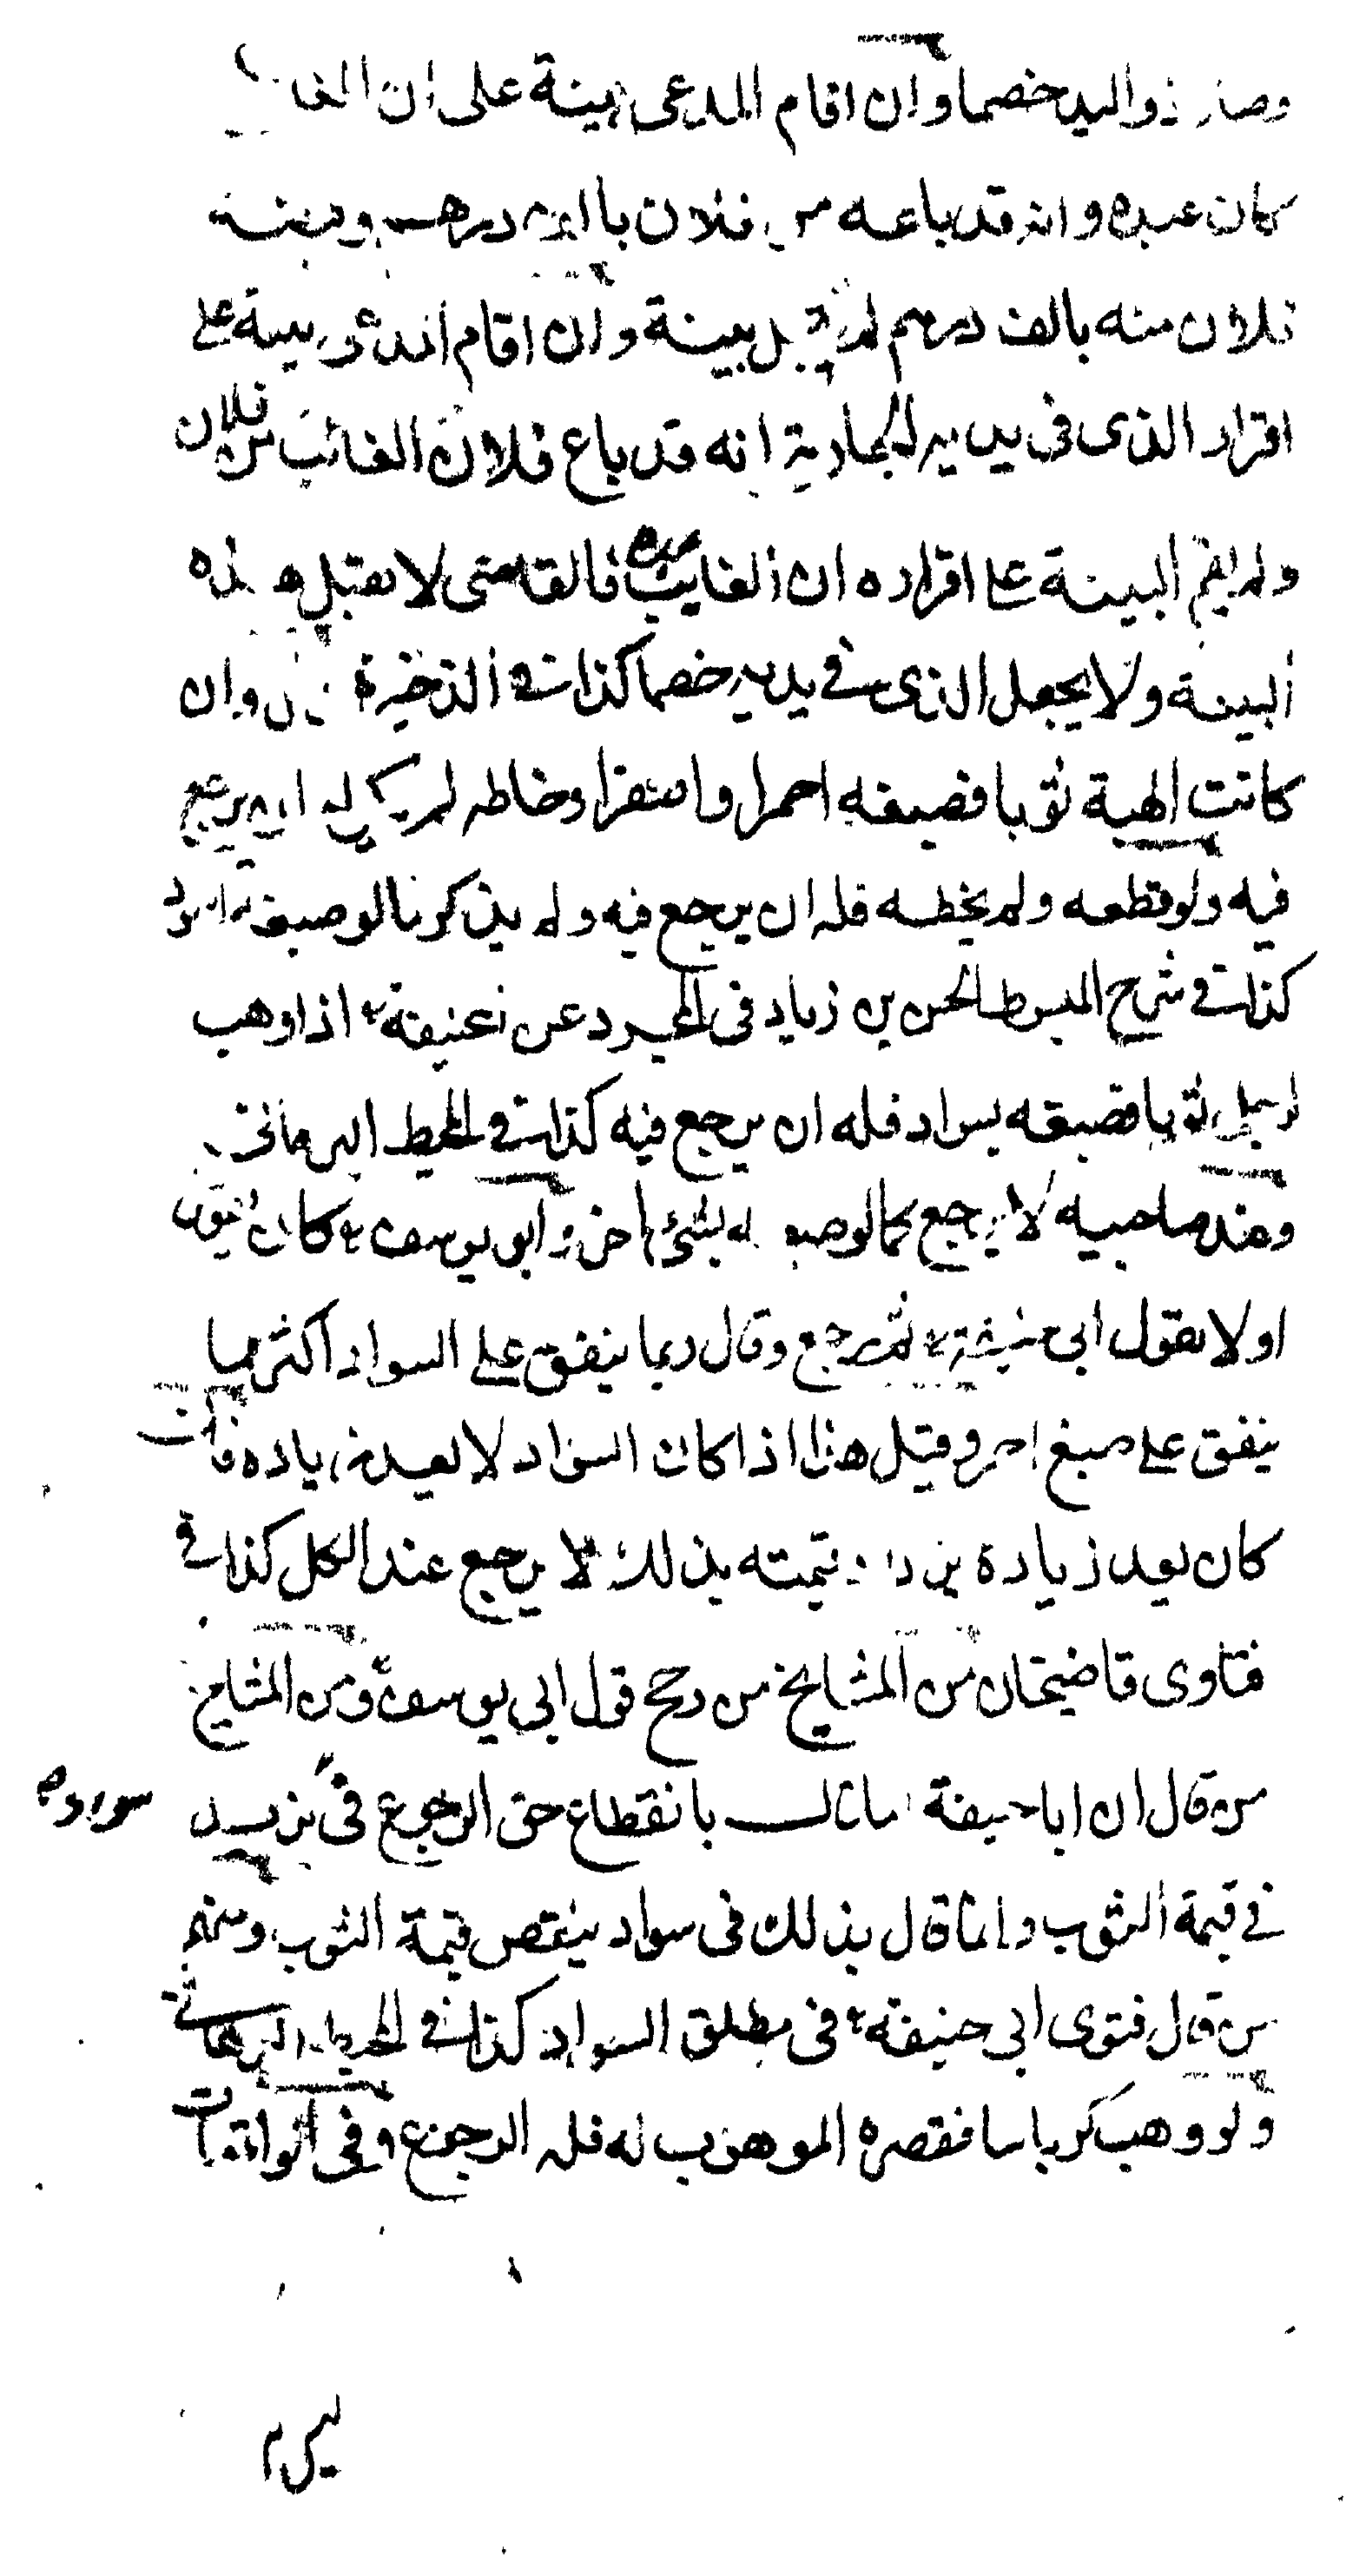 وصار ذو اليد خصما وان اقام المدعى بينة على ان الغا
كان عبده وانه قد باعه من فلان بالف درهم وبينة
فلان منه بالف درهم لم يقبل بينة وان اقام المدعى بينة على
اقرار الذى فى يديه الجارية انه قد باع فلان الغائب من فلان
ولم يقم البينة على اقراره ان الغايب فالقاضى لا يقبل هذه
البينة ولا يجعل الذى فى يديه خصما كذا فى الذخيرة وان
كانت الهبة ثوبا فصبغه احمرا واصفرا وخاطه لم يكن له ان يرجع
فيه ولو قطعه ولم يخطه فله ان يرجع فيه ولم يذكر مالو صبغه اسود
كذا فى شرح المبسوط الحسن بن زياد فى المجرد عن ابيحنيفة اذا وهب
لرجل ثوبا فصبغه بسواد فله ان يرجع فيه كذا فى المحيط البرهانى
وعند صاحبيه لا يرجع كمالو صبغه بشئ اخر وابو يوسف كان يقول
اولا بقول ابى حنيفة ثم رجع وقال ربما ينفق على السواد اكثر مما
ينفق على صبغ اخر وقيل هذا اذا كان السواد لا يعد زيادة فان
كان يعد زيادة يزداد قيمته بذلك لا يرجع عند الكل كذا فى
فتاوى قاضيخان من المشايخ من رجح قول ابى يوسف ومن المشايخ
من قال ان ابا حنيفة ما قال بانقطاع حق الرجوع فى يزيد
سواد
فى قيمة الثوب وانما قال بذلك فى سواد ينقص قيمة الثوب ومنهم
من قال فتوى ابى حنيفة فى مطلق السواد كذا فى المحيط البرهانى
ولو وهب كرباسا فقصره الموهوب له فله الرجوع وفى الواقعات
ليس